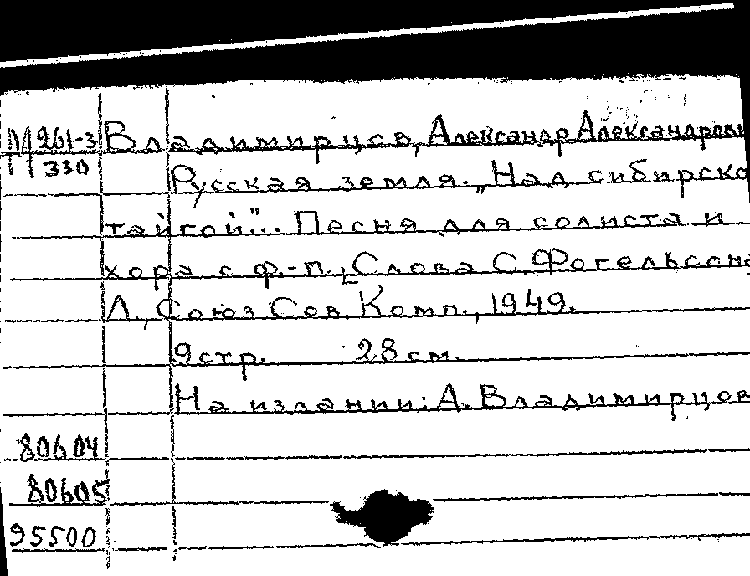 М 261-3 Владимирцов, Александр Александрови
330 Русская земля. „Над сибирско
тайгой"... Песня для солиста и
хора с ф.-п. Слова С. Фогельсона
Л., Союз Сов. Комп., 1949.
9 стр. 28 см.
На издании: А. Владимирцов
80604
80605
95500